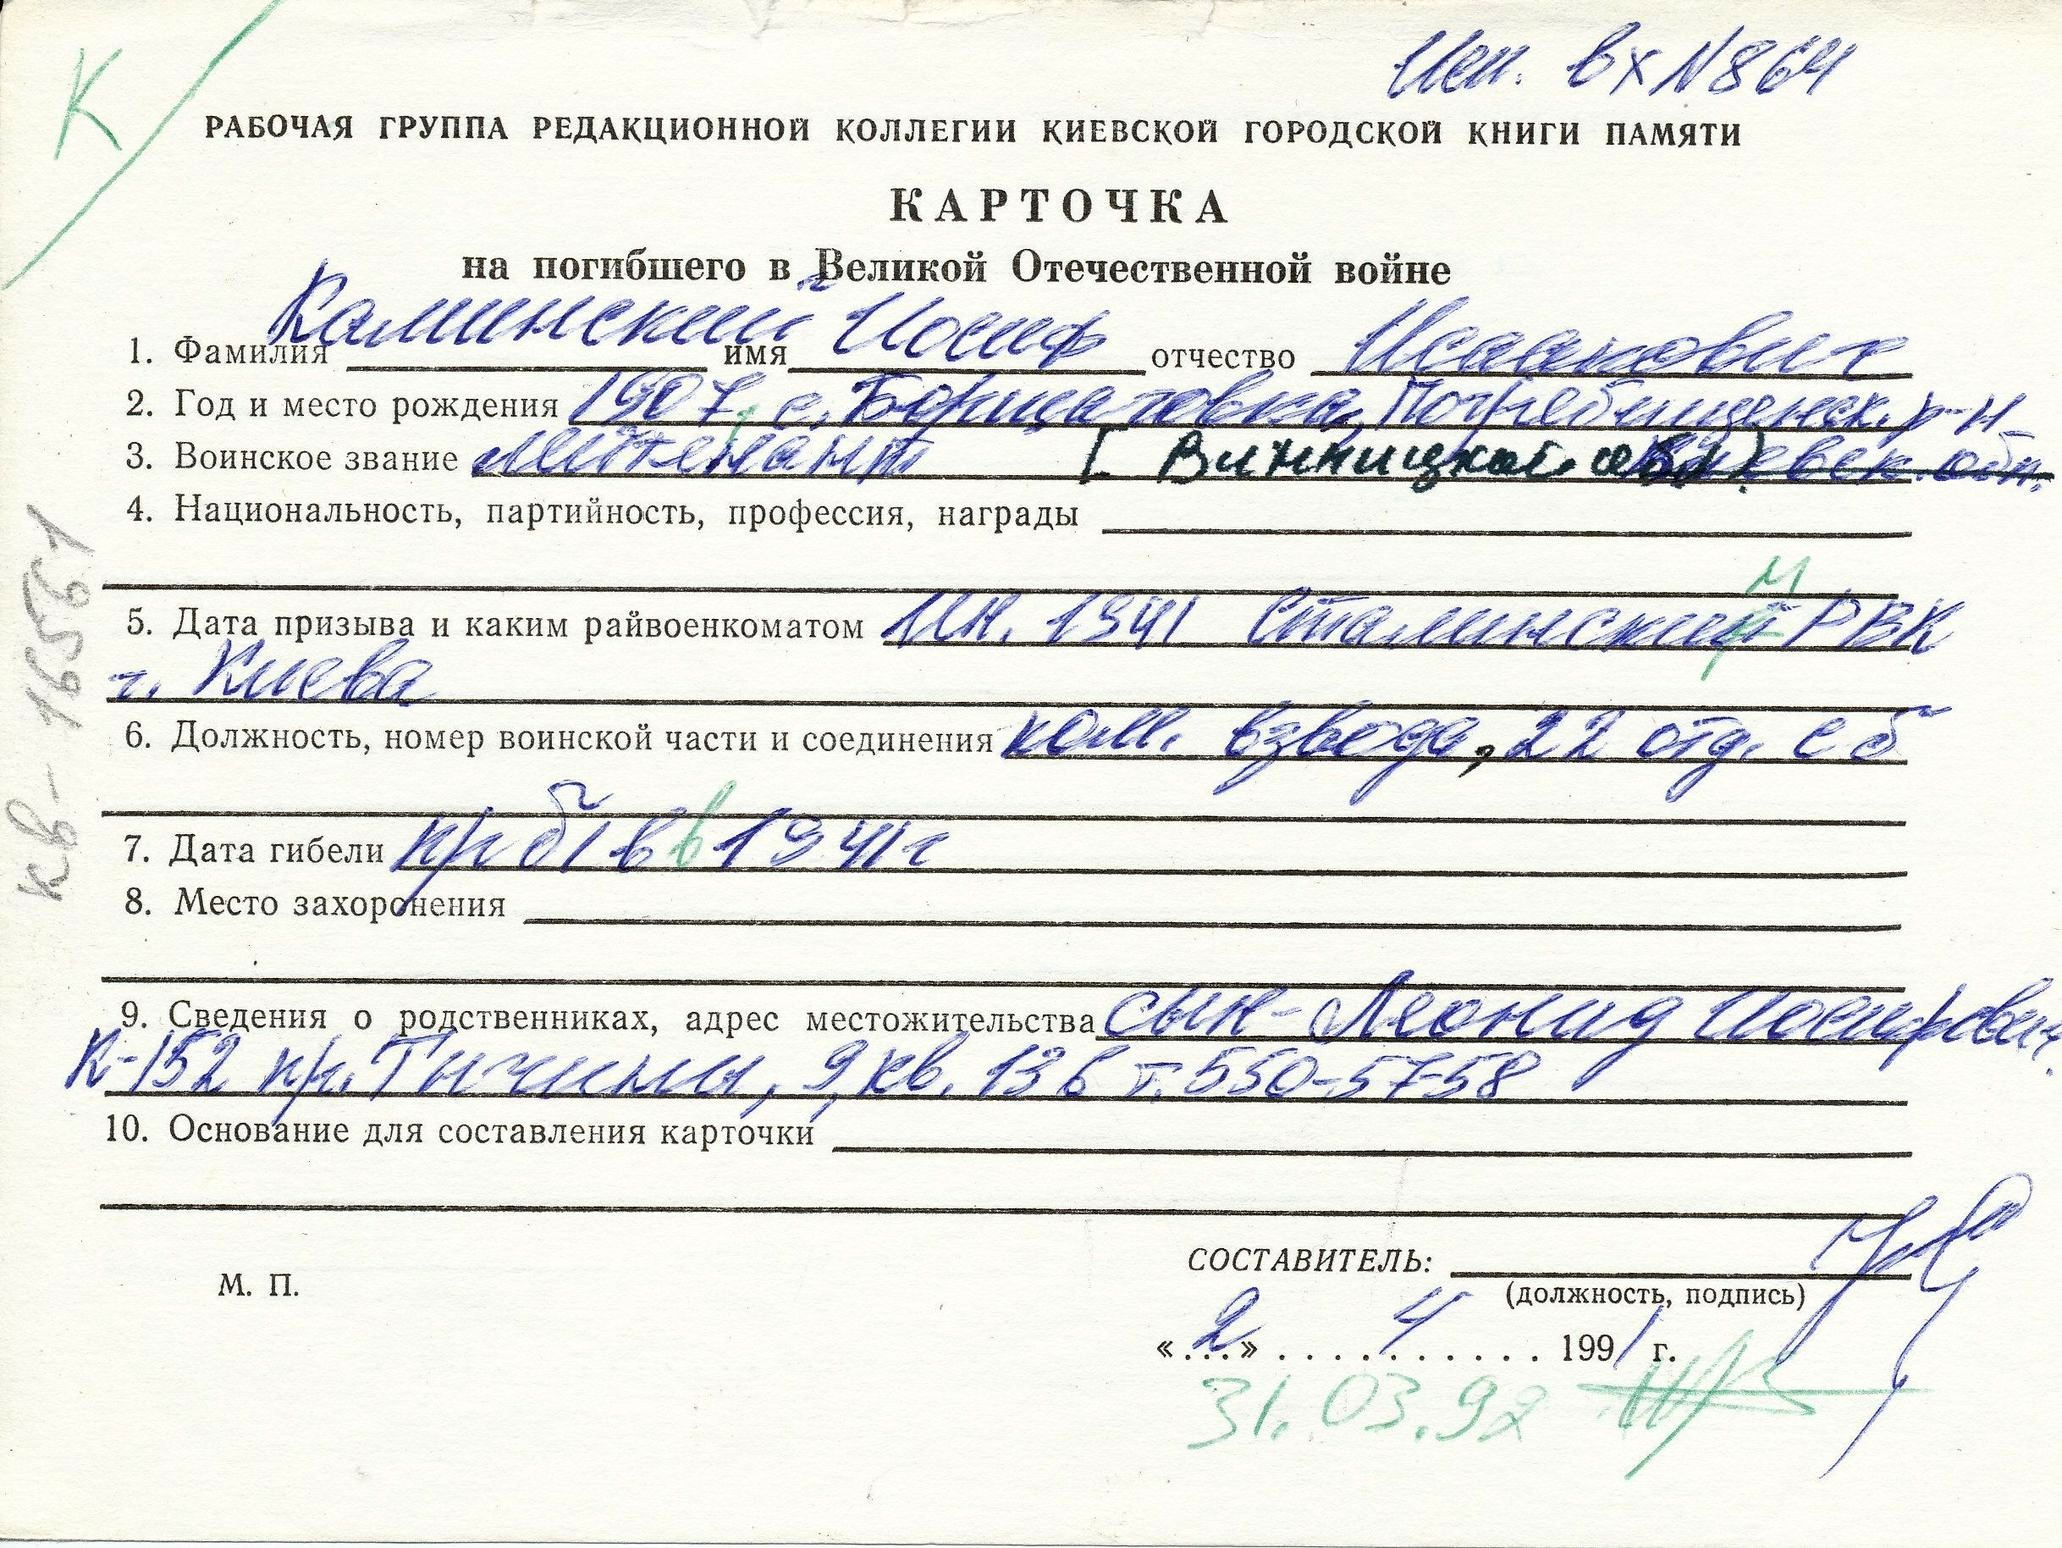 К
Исп. вх N 864
РАБОЧАЯ ГРУППА РЕДАКЦИОННОЙ КОЛЛЕГИИ КИЕВСКОЙ ГОРОДСКОЙ КНИГИ ПАМЯТИ
КАРТОЧКА
на погибшего в Великой Отечественной войне
1. Фамилия Каминский имя Иосиф отчество Исаакович
2. Год и место рождения 1907, с. Борщаговка, Погребищенск. р-н
3. Воинское звание лейтенант [Винницкой обл.] Киевск. обл.
4. Национальность, партийность, профессия, награды
5. Дата призыва и каким райвоенкоматом ИН. 1941 Сталинский м РВК
г. Киева
6. Должность, номер воинской части и соединения ком. взвода, 22 отд. сб
7. Дата гибели пр б/в в 1941 г
8. Место захоронения
9. Сведения о родственниках, адрес местожительства сын - Леонид Иосифович
К-152 пр. Тичины, 9, кв. 136 т. 550-5758
10. Основание для составления карточки
СОСТАВИТЕЛЬ:
М. П.
(должность, подпись)
«2» 4 1991 г.
31.03.92
КВ-16561